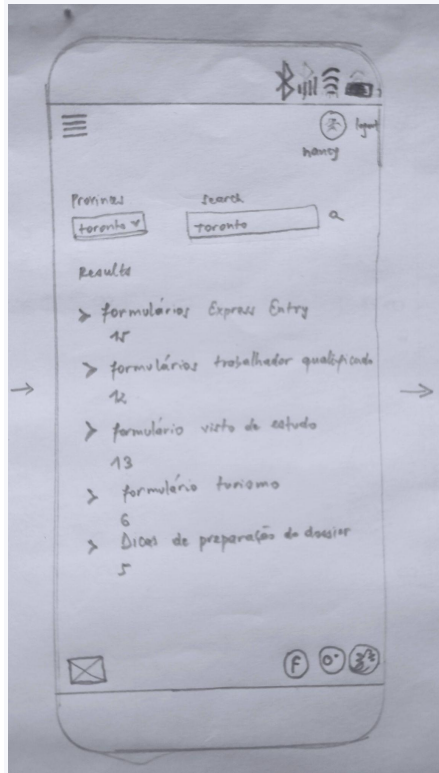 logout
nancy
Provinces Search
toronto toronto
Results
> formulários Express Entry
15
> formulários trabalhador qualificado
12
> formulário visto de estudo
13
> formulário turismo
6
> Dicas de preparação do dossier
5
F